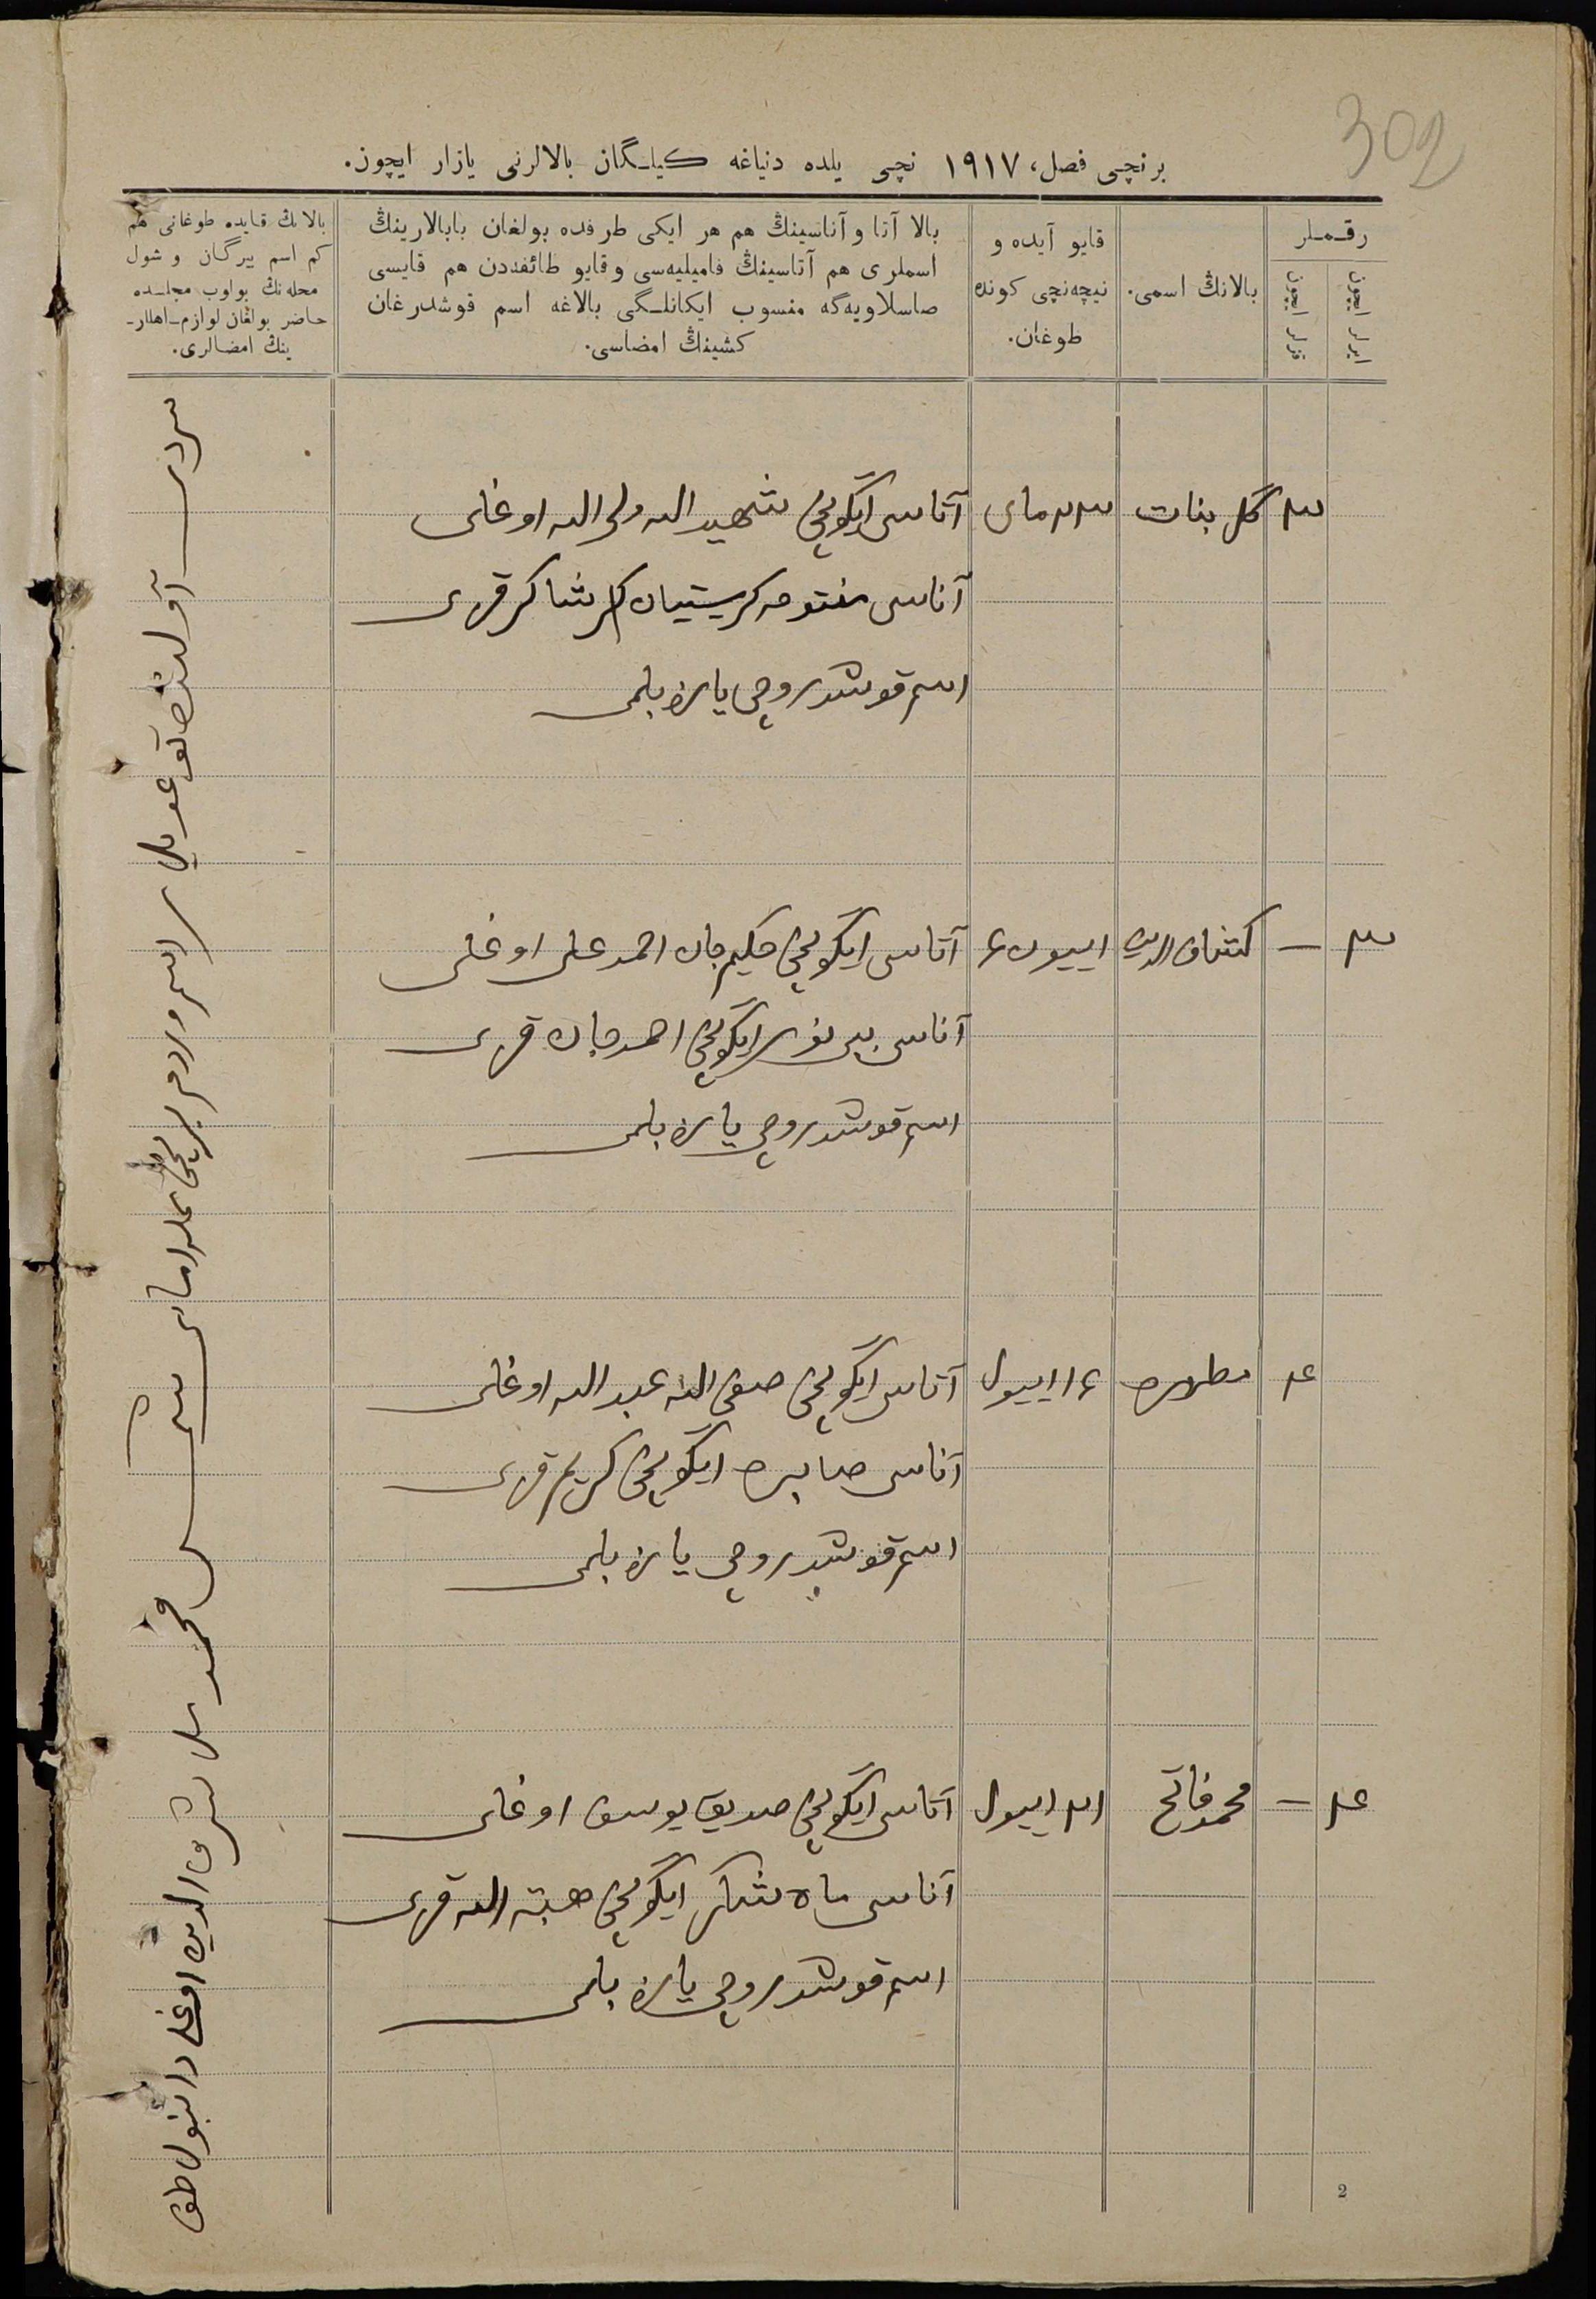 302
برنچی فصل، ١٩١٧ نچی یلده دنیاغه کیلـگان بالالرنی یازار ایچون.
رقـمـلر
ایرلر ایچون
قزلر ایچون
بالانڭ اسمی.
قایو آیده و
نیچه‌نچی کونده
طوغان.
بالا آتا و آناسینڭ هم هر ایکی طرفده بولغان بابالارینڭ
اسملری هم آتاسینڭ فامیلیه‌سی و قایو طائفه‌دن هم قایسی
صاسلاویه‌گه منسوب ایکانلـگی بالاغه اسم قوشدرغان
کشینڭ امضاسی.
بالانڭ قایده طوغانی هم
کم اسم بیرگان و شول
محله‌نڭ بولوب مجلـسده
حاضر بولغان لوازم-اهللار-
ینڭ امضالری.
٣ گل بنات ٢٣ مای آتاسی ایگونچی شهید الله ولی الله اوغلی
آناسی کریستیان شاکر قزی
اسم قوشدروچی یازه بلمی
٣ — اییون ۶ آتاسی ایگونچی حکیم جان احمد علی اوغلی
آناسی بی نور ایگونچی احمد جان قزی
اسم قوشدروچی یازه بلمی
۴ مطهره ۱۶ اییول آتاسی ایگونچی صفی الله عبد الله اوغلی
آناسی صابره ایگونچی کریم قزی
اسم قوشدروچی یازه بلمی
۴ — محمد فاتح ٢١ اییول آتاسی ایگونچی صدیق یوسف اوغلی
آناسی ماه شکر ایگونچی هبة الله قزی
اسم قوشدروچی یازه بلمی
آولنده اسم ویردم برنچی محله امامی شرف الدین اوغلی
2